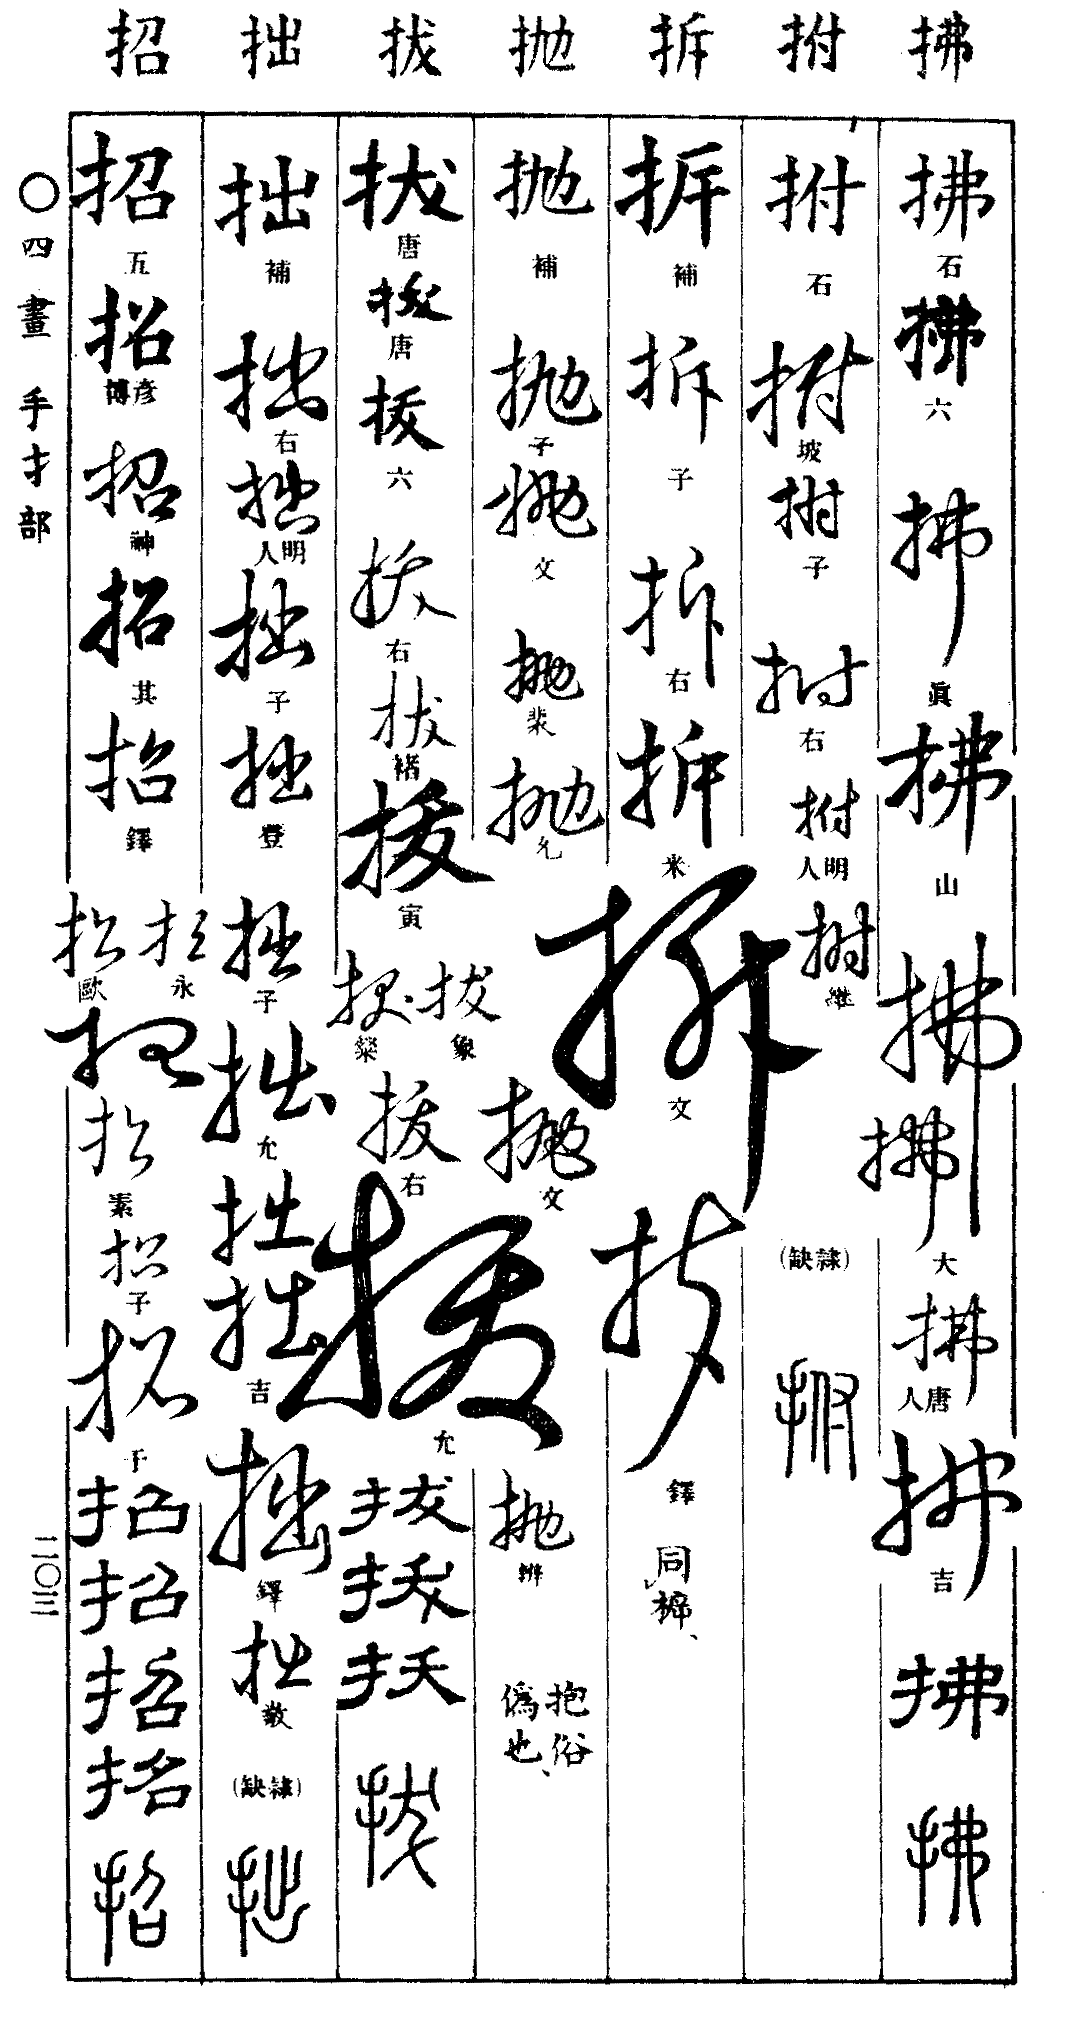 拂 拊 拆 抛 拔 拙 招
拂 石
拂 六
拂 眞
拂 山
拂
拂 大
拂 唐人
拂 吉
拂
拂
拊 石
拊 坡
拊 子
拊 右
拊 明人
拊 維
(隷缺)
拊
拆 補
拆 子
拆 右
拆 米
拆 文
拆 鐸
同㭊、
抛 補
抛 子
抛 文
抛 裴
抛 允
抛 文
抛 辨
抱俗
僞也、
拔 唐
拔 唐
拔 六
拔 右
拔 褚
拔 寅
拔 象
拔 粲
拔 右
拔 允
拔
拔
拔
拔
拙 補
拙 右
拙 明人
拙 子
拙 登
拙 子
拙 允
拙
拙 吉
拙 鐸
拙 敬
(隷缺)
拙
招 五
招 彦博
招 神
招 其
招 鐸
招 永
招 歐
招
招 素
招 子
招 于
招
招
招
招
招
〇四畫 手扌部
二〇三